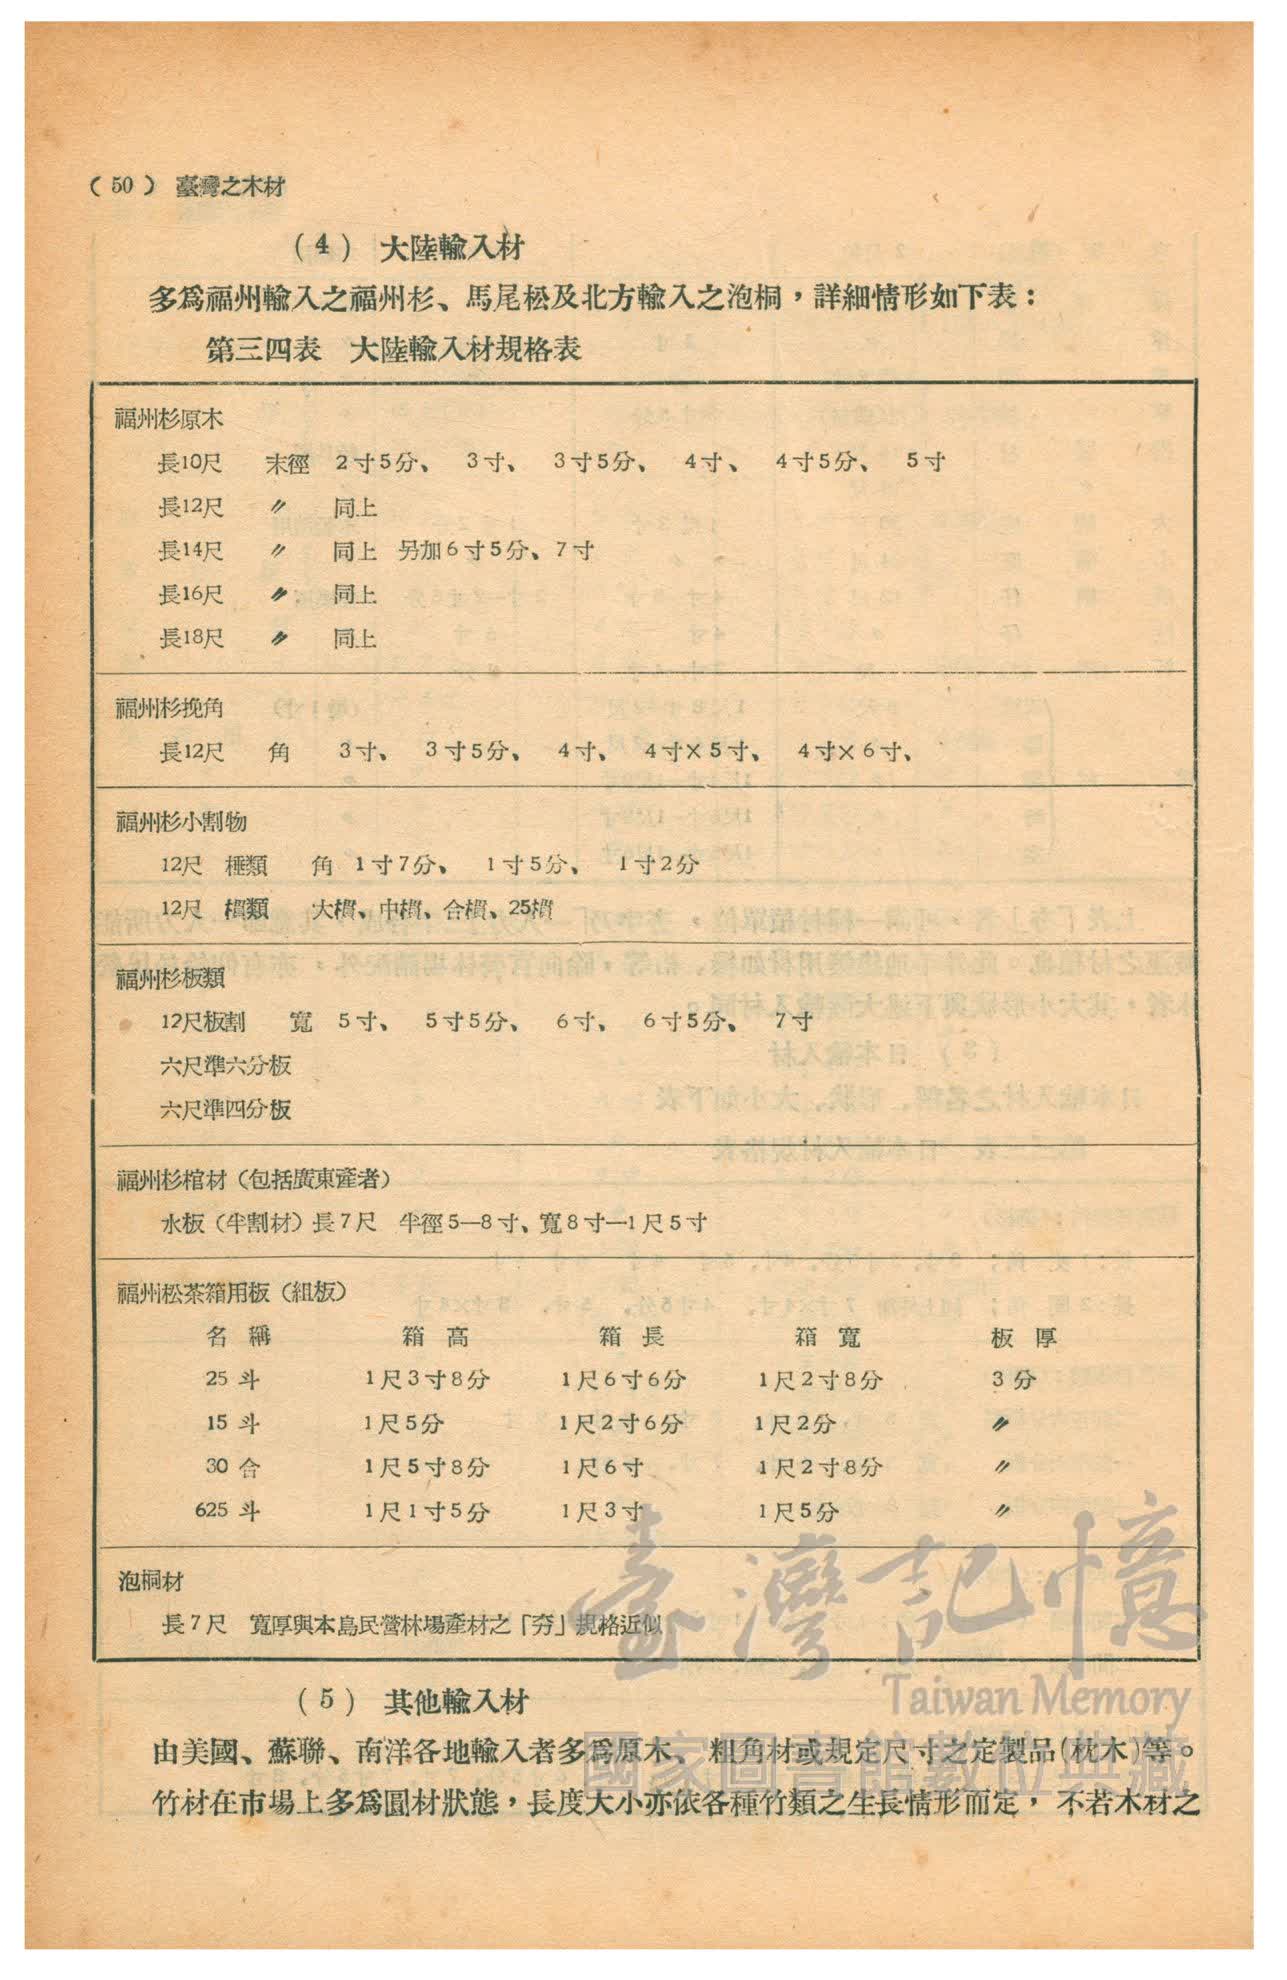 ( 50 ) 臺灣之木材
(4) 大陸輸入材
多爲福州輸入之福州杉、馬尾松及北方輸入之泡桐，詳細情形如下表：
第三四表 大陸輸入材規格表
福州杉原木
長10尺 末徑 2寸5分、 3寸、 3寸5分、 4寸、 4寸5分、 5寸
長12尺 〃 同上
長14尺 〃 同上 另加6寸5分、7寸
長16尺 〃 同上
長18尺 〃 同上
福州杉挽角
長12尺 角 3寸、 3寸5分、 4寸、 4寸×5寸、 4寸×6寸、
福州杉小割物
12尺 棰類 角 1寸7分、 1寸5分、 1寸2分
12尺 樻類 大樻、中樻、合樻、25樻
福州杉板類
12尺板割 寬 5寸、 5寸5分、 6寸、 6寸5分、 7寸
六尺準六分板
六尺準四分板
福州杉棺材（包括廣東產者）
水板（半割材）長7尺 半徑5—8寸、寬8寸—1尺5寸
福州松茶箱用板（組板）
名稱 箱高 箱長 箱寬 板厚
25斗 1尺3寸8分 1尺6寸6分 1尺2寸8分 3分
15斗 1尺5分 1尺2寸6分 1尺2分 〃
30合 1尺5寸8分 1尺6寸 1尺2寸8分 〃
625斗 1尺1寸5分 1尺3寸 1尺5分 〃
泡桐材
長7尺 寬厚與本島民營林場產材之「夯」規格近似
(5) 其他輸入材
由美國、蘇聯、南洋各地輸入者多爲原木、粗角材或規定尺寸之定製品(枕木)等。
竹材在市場上多爲圓材狀態，長度大小亦依各種竹類之生長情形而定，不若木材之
臺灣記憶
Taiwan Memory
國家圖書館數位典藏